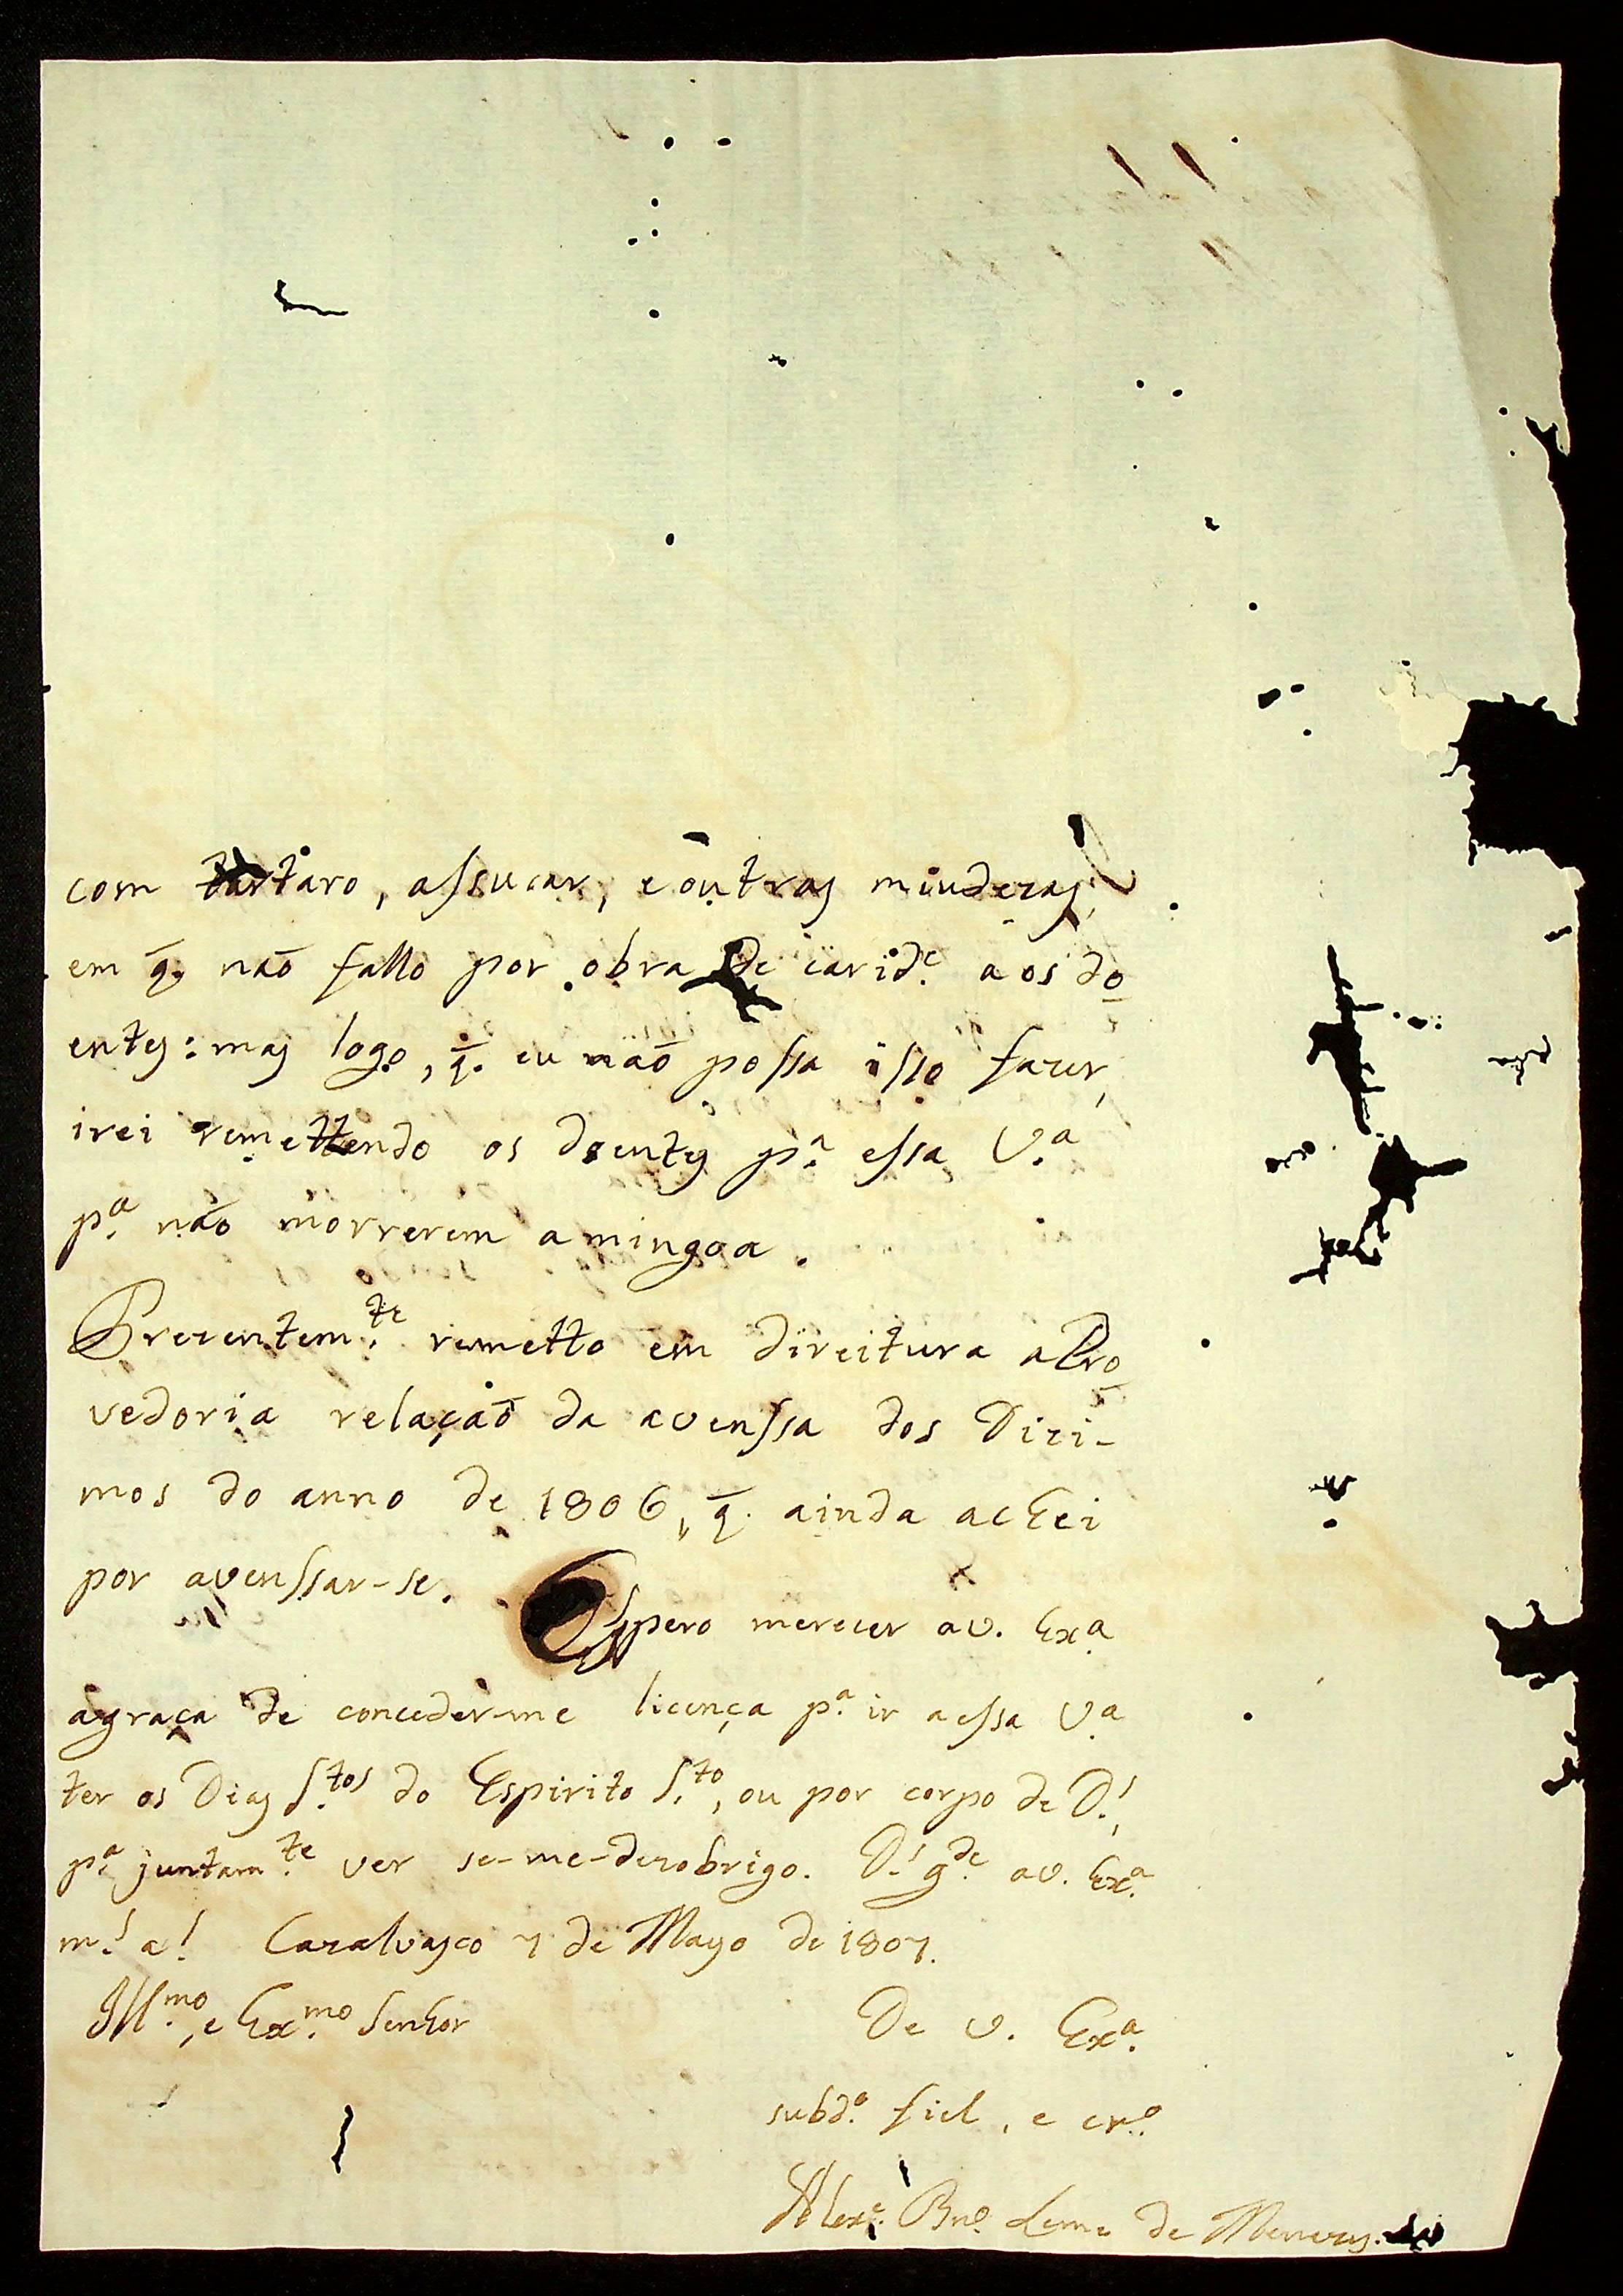 com tartaro, assucar, e outras miudezas,
em q̃. naõ fallo por obra de carid.e aos do
entes: mas logo, q̃. eu naõ possa isso fazer,
irei remettendo os doentes p.a essa V.a
p.a naõ morrerem a mingoa.
Prezentem.te remetto em direitura a Pro
vedoria relaçaõ da avenssa dos Dizi-
mos do anno de 1806, q̃. ainda achei
por avenssar-se. Espero merecer a V. Ex.a
a graça de conceder-me licença p.a ir a essa V.a
ter os Dias S.tos do Espirito S.to, ou por corpo de D.s,
p.a juntam.te ver se-me-dezobrigo. D.s g.de a V. Ex.a
m.s a.s Cazalvasco 7 de Mayo de 1807.
Ill.mo, e Ex.mo Senhor
De V. Ex.a
subd.o fiel, e cr.o
Alex.e Bn.o Leme de Menezes.